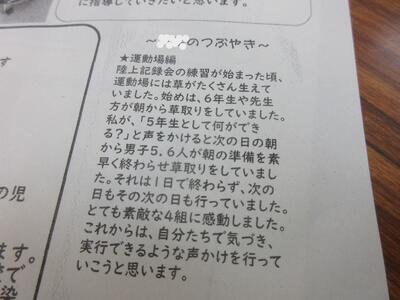 に指導していきたいと思います。
のつぶやき～
★運動場編
陸上記録会の練習が始まった頃、
運動場には草がたくさん生えて
いました。始めは、6年生や先生
方が朝から草取りをしていました。
私が、「5年生として何ができ
る？」と声をかけると次の日の朝
から男子5，6人が朝の準備を素
早く終わらせ草取りをしていまし
た。それは1日で終わらず、次の
日もその次の日も行っていました。
とても素敵な4組に感動しました。
これからは、自分たちで気づき、
実行できるような声かけを行って
いこうと思います。
す
の児
ます。
で
染